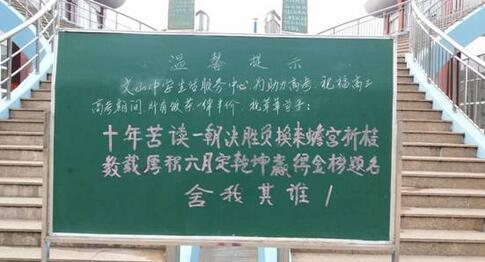 温馨提示
文山中学生活服务中心,为助力高考,祝福高三
高考期间所有饭菜一律半价,祝莘莘学子:
十年苦读一朝决胜负换来蟾宫折桂
数载厚积六月定乾坤赢得金榜题名
舍我其谁!